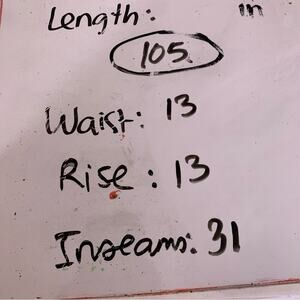 Length: in
105.
Waist: 13
Rise: 13
Inseams: 31